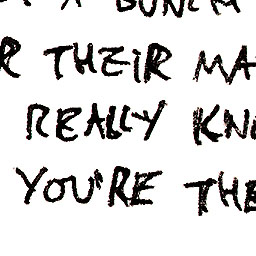 A BUNCH
R THEIR MA
REALLY KN
YOU'RE THE